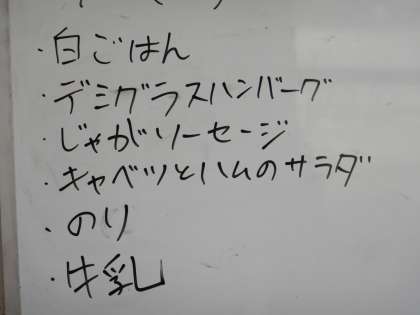 ・白ごはん
・デミグラスハンバーグ
・じゃがソーセージ
・キャベツとハムのサラダ
・のり
・牛乳